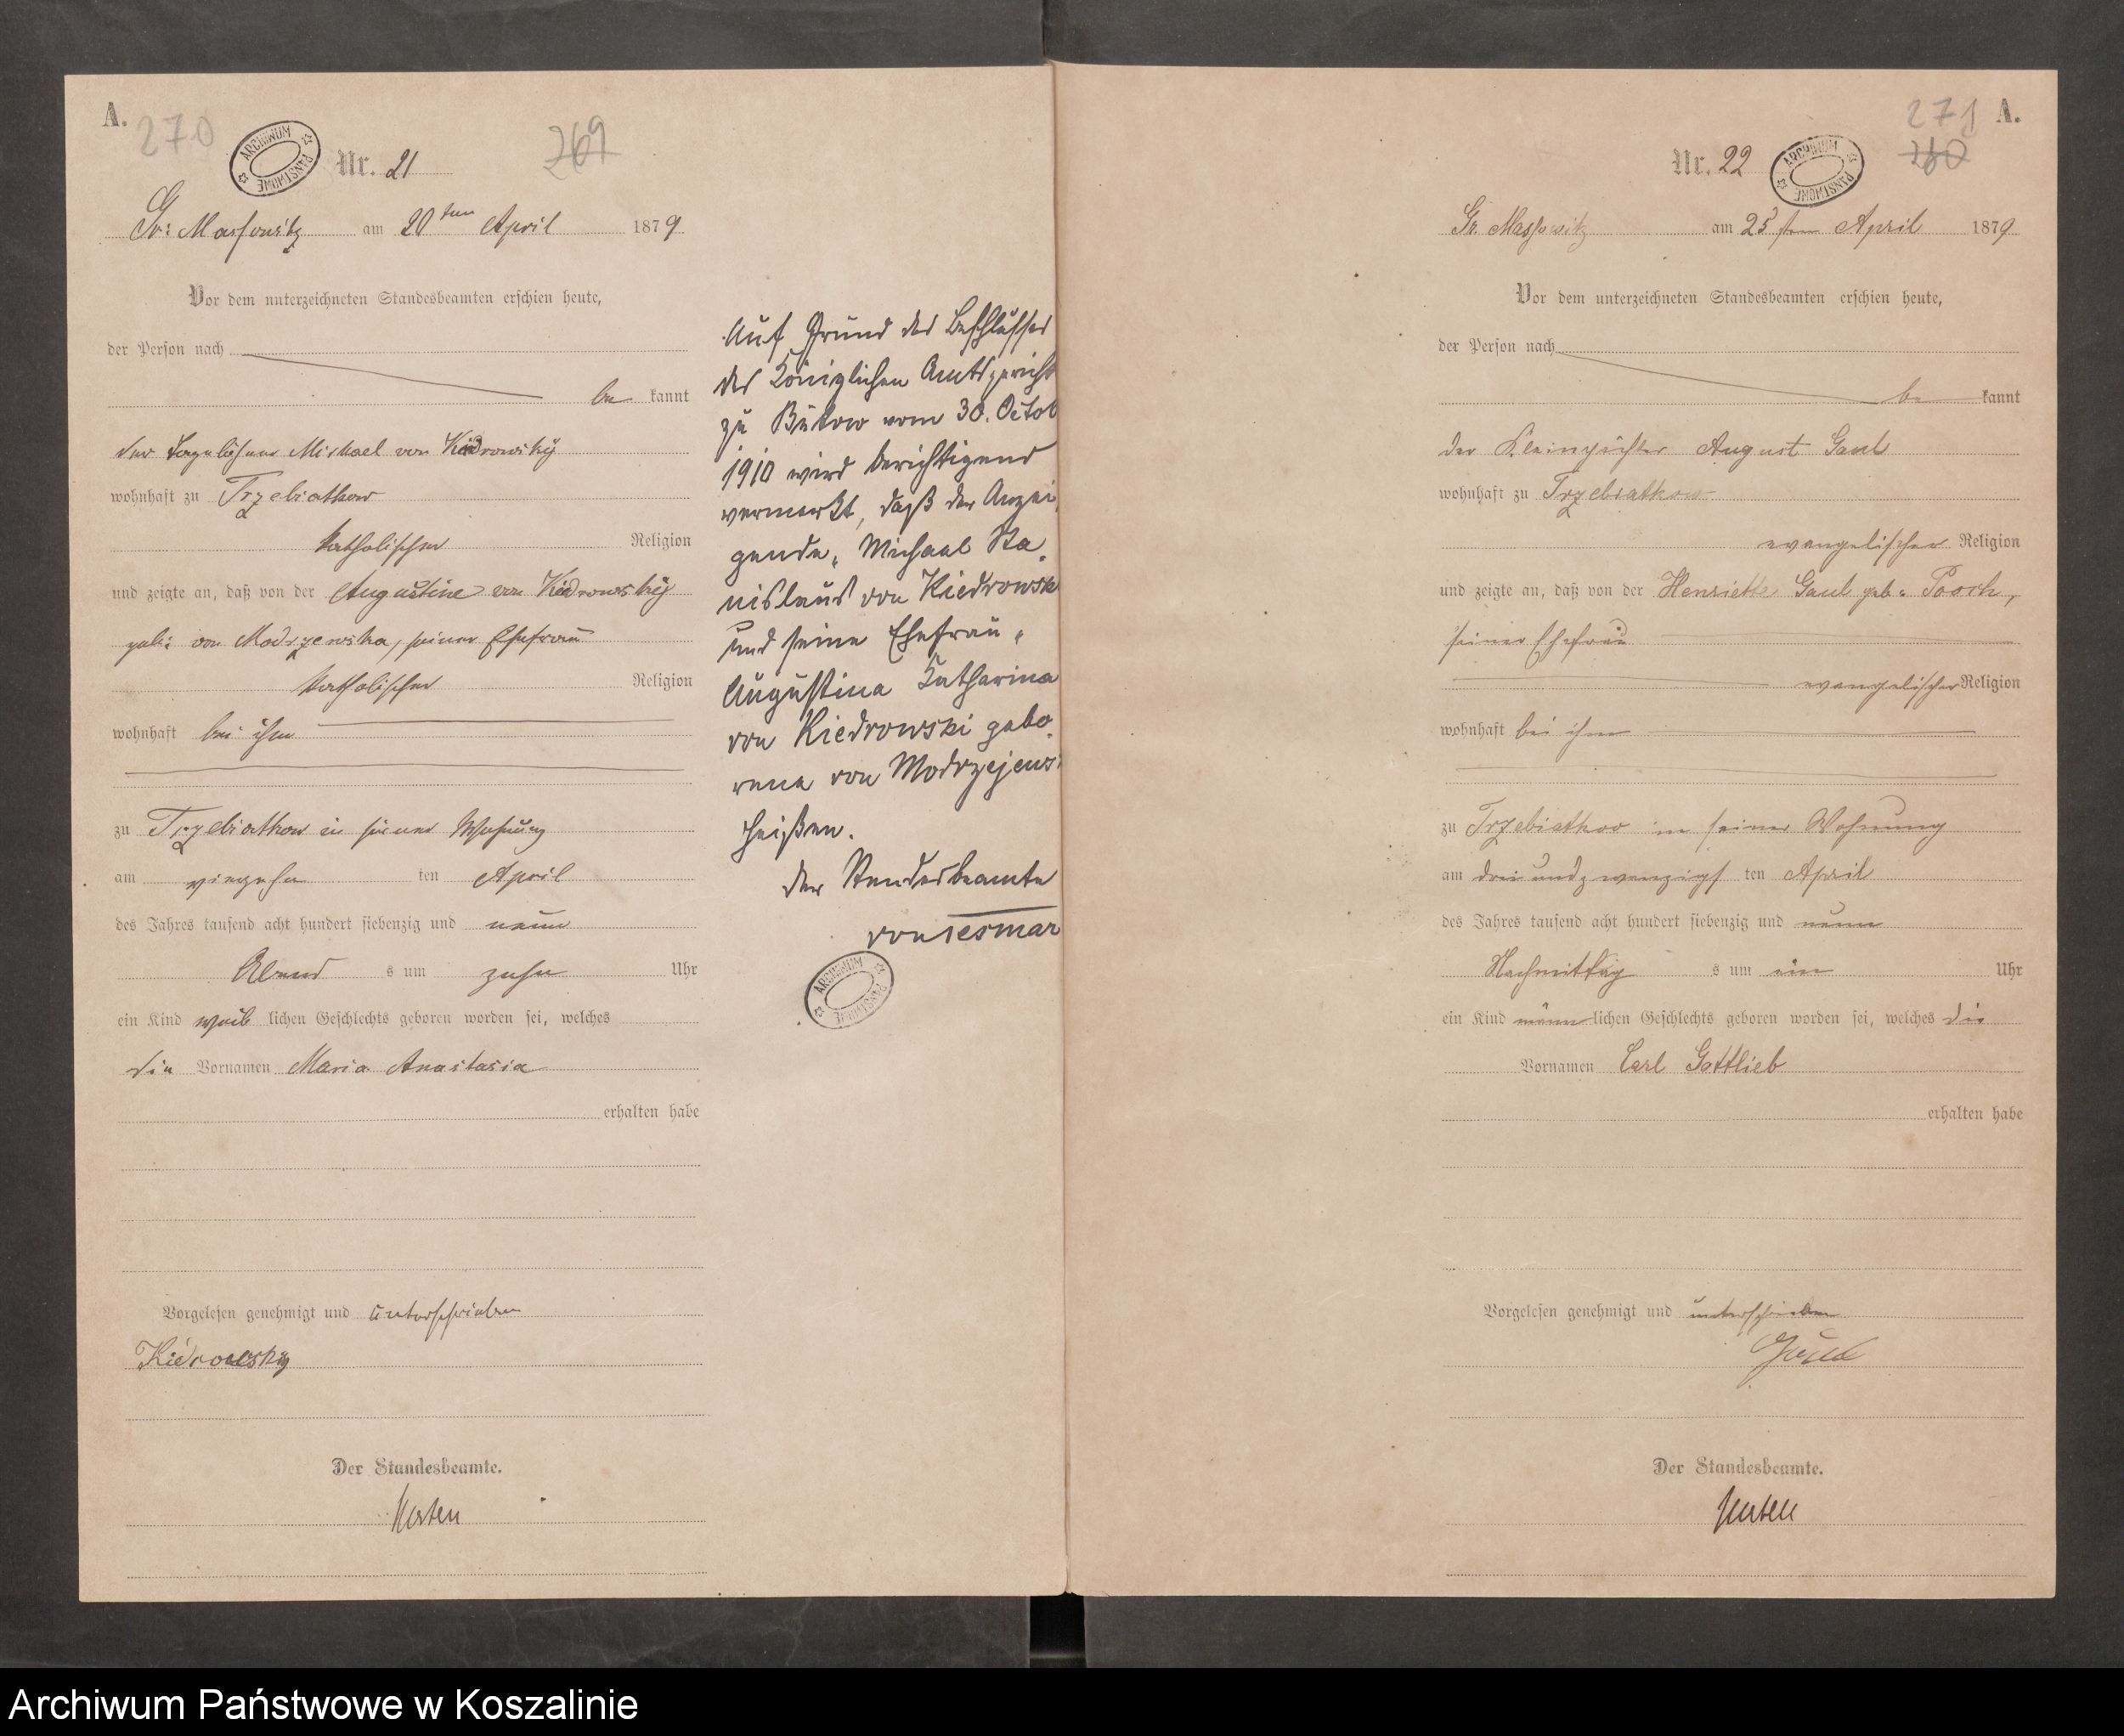 A.
270
ARCHIWUM PAŃSTWOWE
269
Nr. 21
Gr: Massowitz am 20 ten April 1879
Vor dem unterzeichneten Standesbeamten erschien heute,
der Person nach
be kannt
der Tagelöhner Michael von Kiedrowsky
wohnhaft zu Trzebiatkow
katholischer Religion
und zeigte an, daß von der Augustine von Kiedrowsky
geb: von Modrzewska, seiner Ehefrau
katholischer Religion
wohnhaft bei ihm
zu Trzebiatkow in seiner Wohnung
am vierzehn ten April
des Jahres tausend acht hundert siebenzig und neun
Abend s um zehn Uhr
ein Kind weib lichen Geschlechts geboren worden sei, welches
die Vornamen Maria Anastasia
erhalten habe
Vorgelesen genehmigt und unterschrieben
Kiedrowsky
Der Standesbeamte.
Auf Grund des Beschlusses
des Königlichen Amtsgericht
zu Bütow vom 30. Octob
1910 wird berichtigend
vermerkt, daß der Anzei
gende „Michael Sta
nislaus von Kiedrowsk
und seine Ehefrau „
Augustina Katharina
von Kiedrowski gebo
rene von Modrzejews
heißen.
Der Standesbeamte
ARCHIWUM PAŃSTWOWE
271 A.
260
Nr. 22
ARCHIWUM PAŃSTWOWE
Gr. Massowitz am 25 sten April 1879
Vor dem unterzeichneten Standesbeamten erschien heute,
der Person nach
be kannt
der Kleinpächter August Gaul
wohnhaft zu Trzebiatkow
evangelischer Religion
und zeigte an, daß von der Henriette Gaul geb. Pooch,
seiner Ehefrau
evangelischer Religion
wohnhaft bei ihm
zu Trzebiatkow in seiner Wohnung
am drei und zwanzigs ten April
des Jahres tausend acht hundert siebenzig und neun
Nachmittag s um ein Uhr
ein Kind männ lichen Geschlechts geboren worden sei, welches die
Vornamen Carl Gottlieb
erhalten habe
Vorgelesen genehmigt und unterschrieben
Der Standesbeamte.
Archiwum Państwowe w Koszalinie